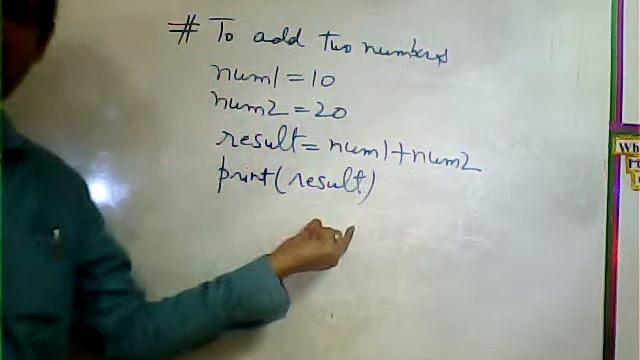 # To add two numbers
num1=10
num2=20
result=num1+num2
print(result)
Wh